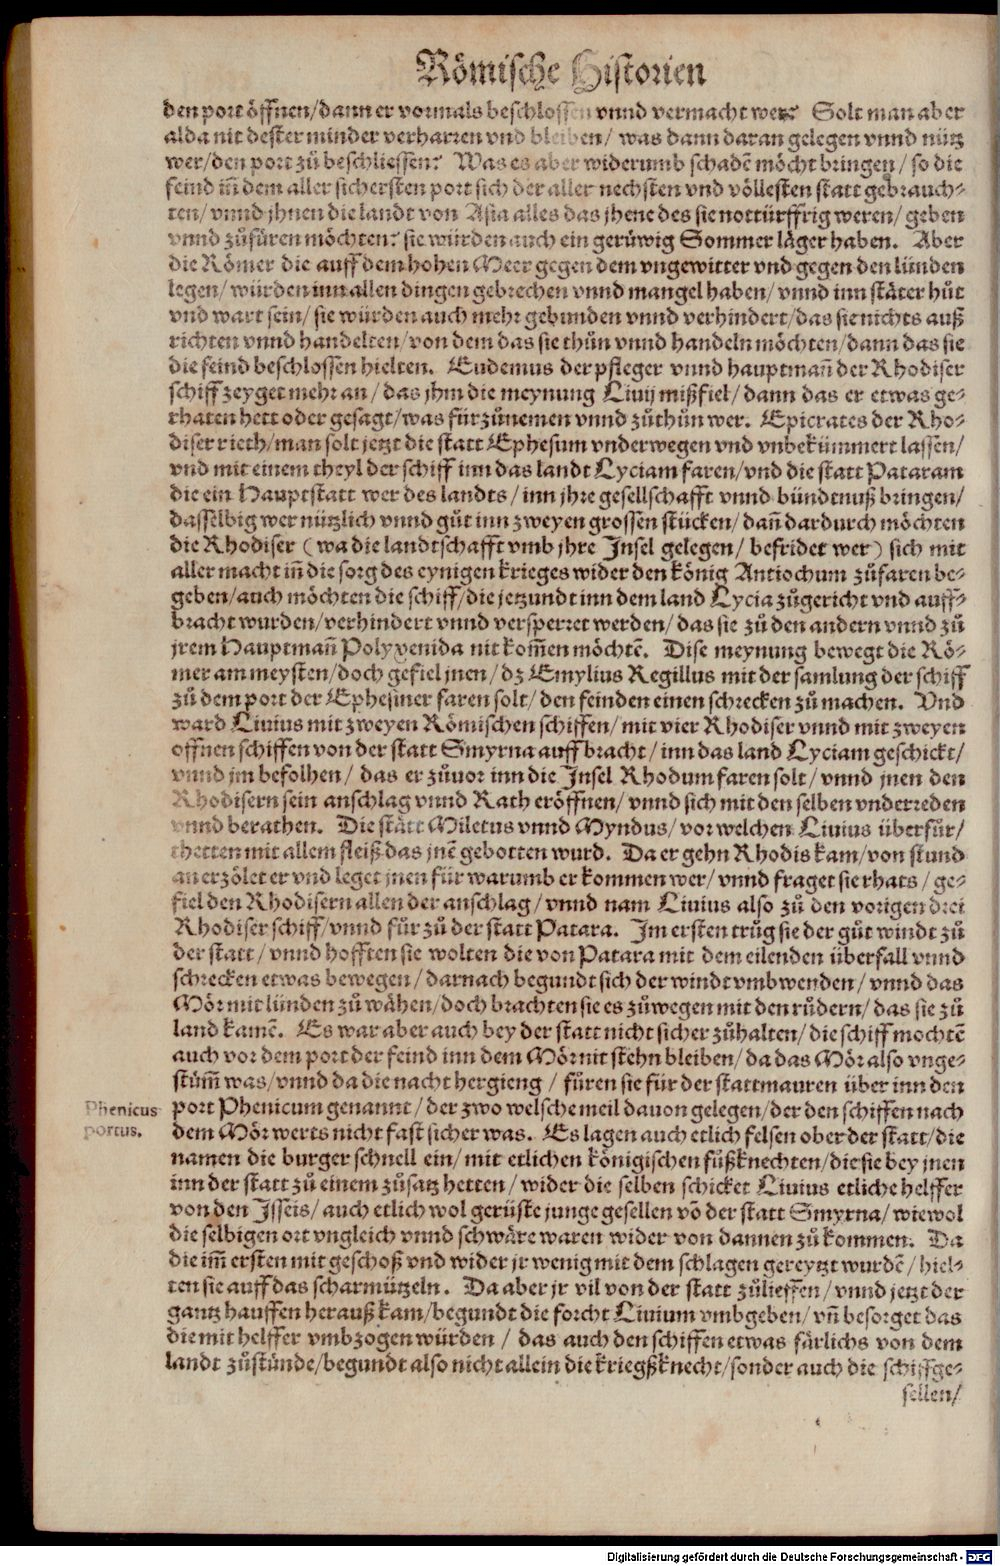 Römische Historien
den port öffnen/dann er vormals beschlossen vnnd vermacht wer? Solt man aber
alda nit dester minder verharren vnd bleiben/ was dann daran gelegen vnnd nütz
wer/den port zů beschliessen? Was es aber widerumb schadē möcht bringen/ so die
feind iñ dem aller sichersten port sich der aller nechsten vnd völlesten statt gebrauch-
ten/ vnnd jhnen die landt von Asia alles das jhene des sie nottürffrig weren/ geben
vnnd zůfüren möchten? sie würden auch ein gerüwig Sommer läger haben. Aber
die Römer die auff dem hohen Meer gegen dem vngewitter vnd gegen den lünden
legen/ würden inn allen dingen gebrechen vnnd mangel haben/ vnnd inn stäter hůt
vnd wart sein/ sie würden auch mehr gebunden vnnd verhindert/das sie nichts auß
richten vnnd handelten/von dem das sie thůn vnnd handeln möchten/dann das sie
die feind beschlossen hielten. Eudemus der pfleger vnnd hauptmañ der Rhodiser
schiff zeyget mehr an/ das jhm die meynung Liuij mißfiel/ dann das er etwas ge-
rhaten hett oder gesagt/was fürzůnemen vnnd zůthůn wer. Epicrates der Rho-
diser rieth/man solt jetzt die statt Ephesum vnderwegen vnd vnbekümmert lassen/
vnd mit einem theyl der schiff inn das landt Lyciam faren/vnd die statt Pataram
die ein Hauptstatt wer des landts/ inn jhre gesellschafft vnnd bündtnuß bringen/
dasselbig wer nützlich vnnd gůt inn zweyen grossen stücken/ dañ dardurch möchten
die Rhodiser (wa die landtschafft vmb jhre Insel gelegen/ befridet wer) sich mit
aller macht iñ die sorg des eynigen krieges wider den könig Antiochum zůfaren be-
geben/auch möchten die schiff/die jetzundt inn dem land Lycia zůgericht vnd auff-
bracht wurden/verhindert vnnd versperret werden/ das sie zů den andern vnnd zů
jrem Hauptmañ Polyxenida nit kom̃en möchtē. Dise meynung bewegt die Rö-
mer am meysten/doch gefiel jnen/dz Emylius Regillus mit der samlung der schiff
zů dem port der Ephesiner faren solt/ den feinden einen schrecken zů machen. Vnd
ward Liuius mit zweyen Römischen schiffen/ mit vier Rhodiser vnnd mit zweyen
offnen schiffen von der statt Smyrna auff bracht/ inn das land Lyciam geschickt/
vnnd jm befolhen/ das er zůuor inn die Insel Rhodum faren solt/ vnnd jnen den
Rhodisern sein anschlag vnnd Rath eröffnen/ vnnd sich mit den selben vnderreden
vnnd berathen. Die stätt Miletus vnnd Myndus/ vor welchen Liuius überfůr/
thetten mit allem fleiß das jnē gebotten wurd. Da er gehn Rhodis kam/von stund
an erzölet er vnd leget jnen für warumb er kommen wer/ vnnd fraget sie rhats/ ge-
fiel den Rhodisern allen der anschlag/ vnnd nam Liuius also zů den vorigen drei
Rhodiser schiff/vnnd fůr zů der statt Patara. Im ersten trůg sie der gůt windt zů
der statt/ vnnd hofften sie wolten die von Patara mit dem eilenden überfall vnnd
schrecken etwas bewegen/ darnach begundt sich der windt vmbwenden/ vnnd das
Mör mit lünden zů wähen/doch brachten sie es zůwegen mit den růdern/ das sie zů
land kamē. Es war aber auch bey der statt nicht sicher zůhalten/ die schiff mochtē
auch vor dem port der feind inn dem Mör nit stehn bleiben/ da das Mör also vnge-
stům̃ was/vnnd da die nacht hergieng / fůren sie für der stattmauren über inn den
Phenicus portus.
port Phenicum genannt/ der zwo welsche meil dauon gelegen/der den schiffen nach
dem Mör werts nicht fast sicher was. Es lagen auch etlich felsen ober der statt/die
namen die burger schnell ein/ mit etlichen königischen fůßknechten/die sie bey jnen
inn der statt zů einem zůsatz hetten/ wider die selben schicket Liuius etliche helffer
von den Isseis/ auch etlich wol gerüste junge gesellen võ der statt Smyrna/ wiewol
die selbigen ort vngleich vnnd schwäre waren wider von dannen zů kommen. Da
die im̃ ersten mit geschoß vnd wider jr wenig mit dem schlagen gereytzt wurdē/ hiel-
ten sie auff das scharmützeln. Da aber jr vil von der statt zůlieffen/ vnnd jetzt der
gantz hauffen herauß kam/begundt die forcht Liuium vmbgeben/ vñ besorget das
die mit helffer vmbzogen würden / das auch den schiffen etwas färlichs von dem
landt zůstünde/begundt also nicht allein die kriegßknecht/sonder auch die schiffge-
sellen/
Digitalisierung gefördert durch die Deutsche Forschungsgemeinschaft - DFG